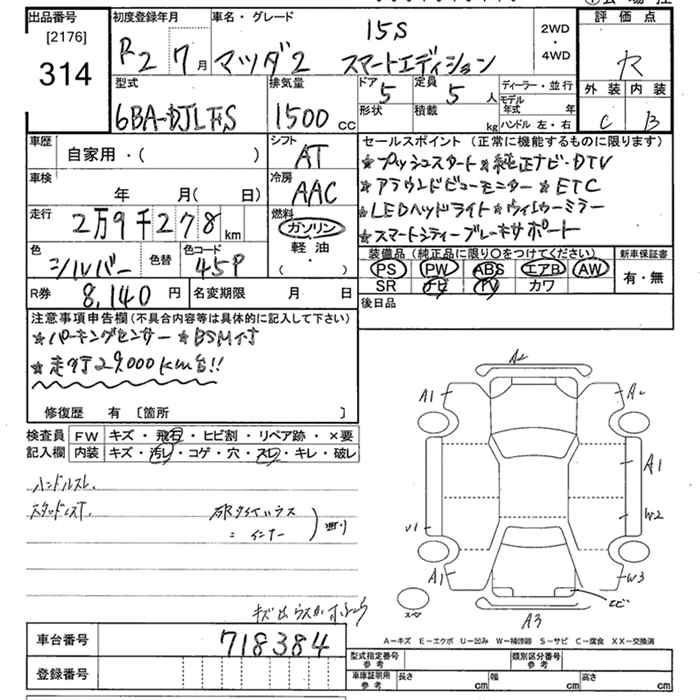 出品番号 初度登録年月 車名・グレード 評価点
[2176] 15S 2WD
314 R2 7月 マツダ2 スマートエディション ・4WD R
型式 排気量 ドア 定員 ディーラー・並行 外装 内装
6BA-DJLFS 1500 cc 5 5 人 モデル年式 年 C B
形状 積載 kg ハンドル 左・右
車歴 シフト セールスポイント (正常に機能するものに限ります)
自家用・( ) AT ★プッシュスタート★純正ナビ・DTV
車検 冷房 ★アラウンドビューモニター ★ETC
年 月(日) AAC ★LEDヘッドライト★ウィンカーミラー
走行 2万9千278 km 燃料 ガソリン ★スマートシティーブレーキサポート
軽油 装備品 (純正品に限り〇をつけてください) 新車保証書
色 シルバー 色替 色コード 45P (・) PS PW ABS エアB AW 有・無
SR ナビ TV カワ
R券 8,140 円 名変期限 月 日 後日品
注意事項申告欄 (不具合内容等は具体的に記入して下さい)
★パーキングセンサー ★BSM付
★走行29,000km台!!
修復歴 有 〔箇所 〕
検査員 FW キズ・飛石・ヒビ割・リペア跡・×要
記入欄 内装 キズ・汚レ・コゲ・穴・スレ・キレ・破レ
ハンドルスレ
A2
A1 A2
A1
W2
A1 W3
A3
車台番号 718384
A-キズ E-エクボ U-凹み W-補修跡 S-サビ C-腐食 XX-交換済
登録番号 型式指定番号 参考 類別区分番号 参考
車庫証明用 参考 長さ cm 幅 cm 高さ cm